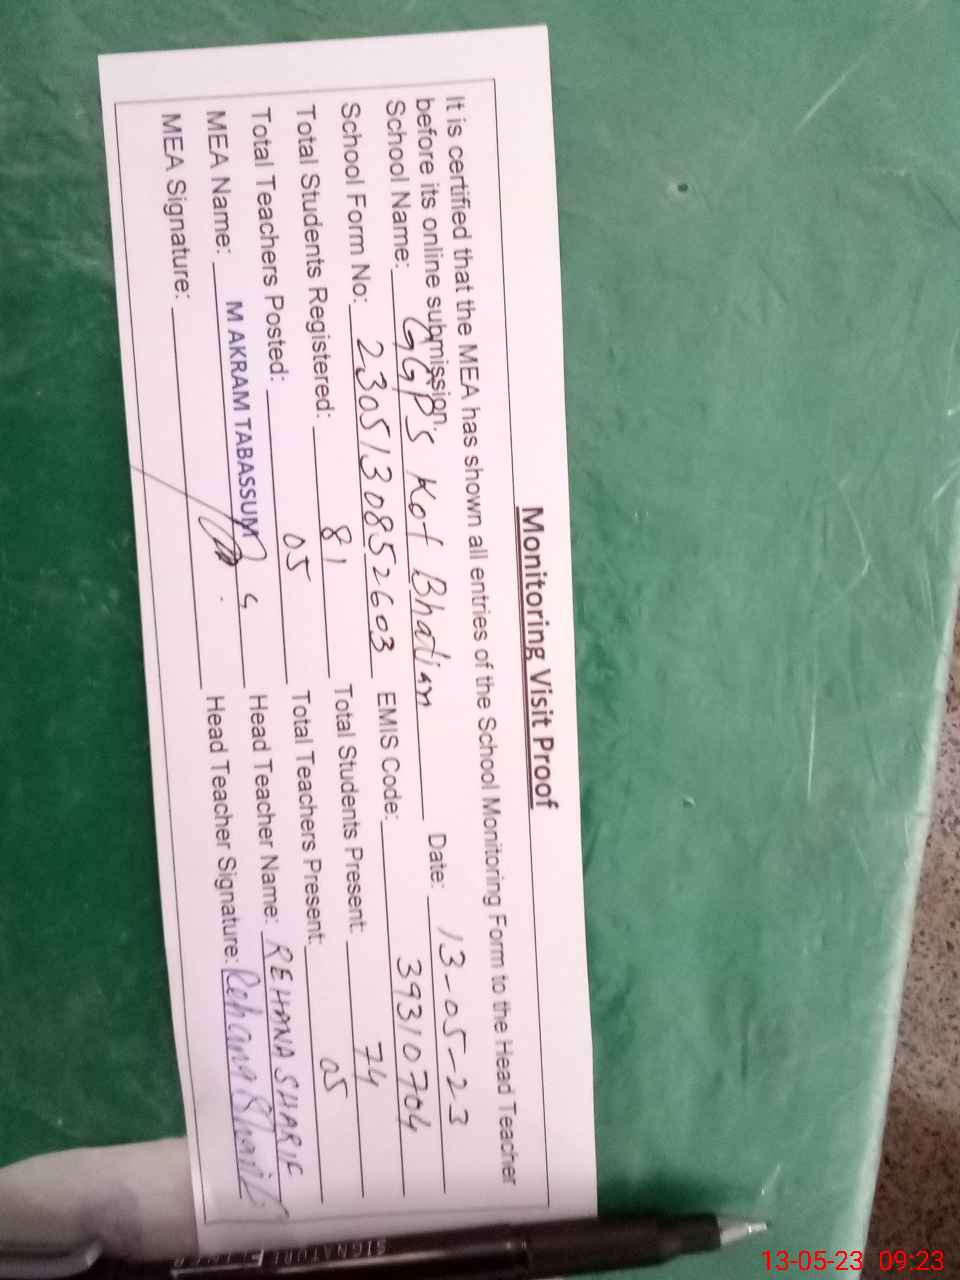 Monitoring Visit Proof
It is certified that the MEA has shown all entries of the School Monitoring Form to the Head Teacher
before its online submission.
School Name: GGP'S Kot Bhatian Date: 13-05-23
School Form No: 2305130852603 EMIS Code: 39310704
Total Students Registered: 81 Total Students Present: 74
Total Teachers Posted: 05 Total Teachers Present: 05
MEA Name: M AKRAM TABASSUM Head Teacher Name: REHANA SHARIF
MEA Signature: Head Teacher Signature: Rehana Sharif
SIGNATURE
13-05-23 09:23